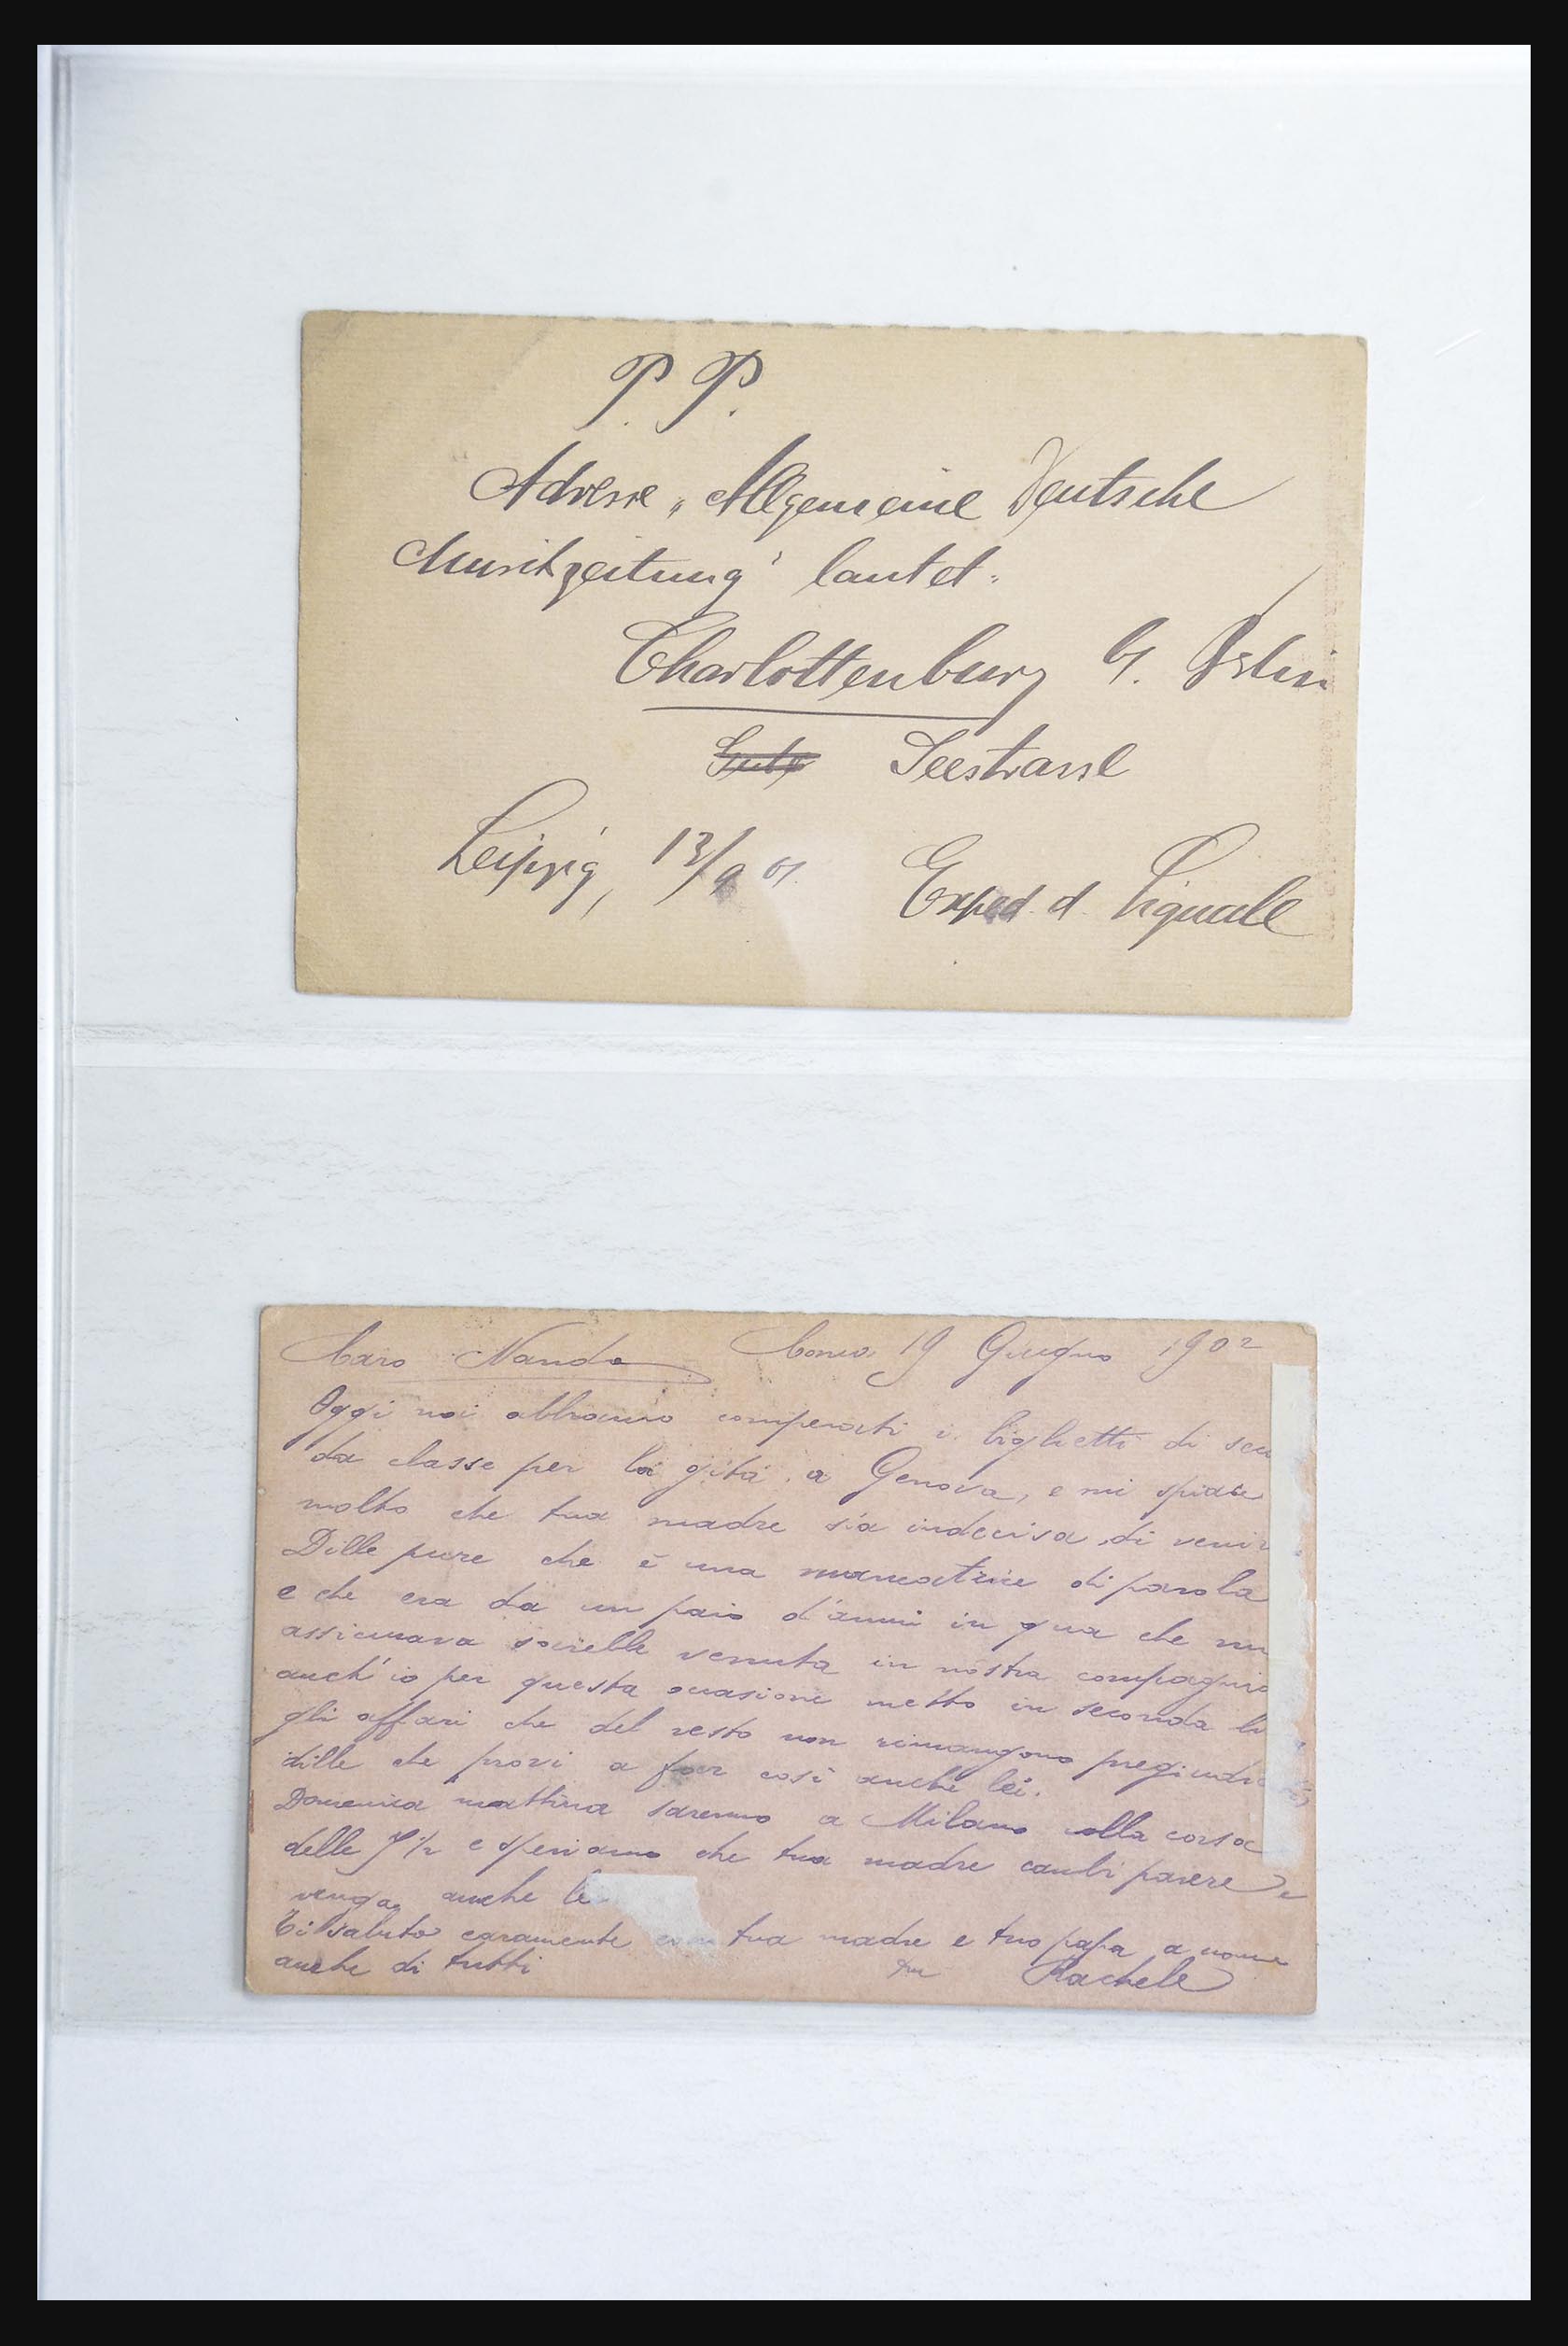 P. P.
Adresse „Allgemeine Deutsche
Musikzeitung" lautet:
Charlottenburg b. Berlin
Seestrasse
Leipzig, 13/9 01. Exped. d. Signale
Caro Nando Como 19 Giugno 1902
Oggi noi abbiamo comperati i biglietti di
da classe per la gita a Genova, e mi spiace
molto che tua madre sia indecisa di
Dille pure che è una mancatrice di parola
e che era da un paio d'anni in qua che
assicurava sarebbe venuta in nostra
anch'io per questa occasione metto in seconda
gli affari che del resto non rimangono
dille che provi a far così anche lei.
Domenica mattina saremo a Milano colla corsa
delle 7 1/2 e speriamo che tua madre cambi parere e
venga anche
Ti saluto caramente tua madre e tuo papa a nome
anche di tutti Rachele